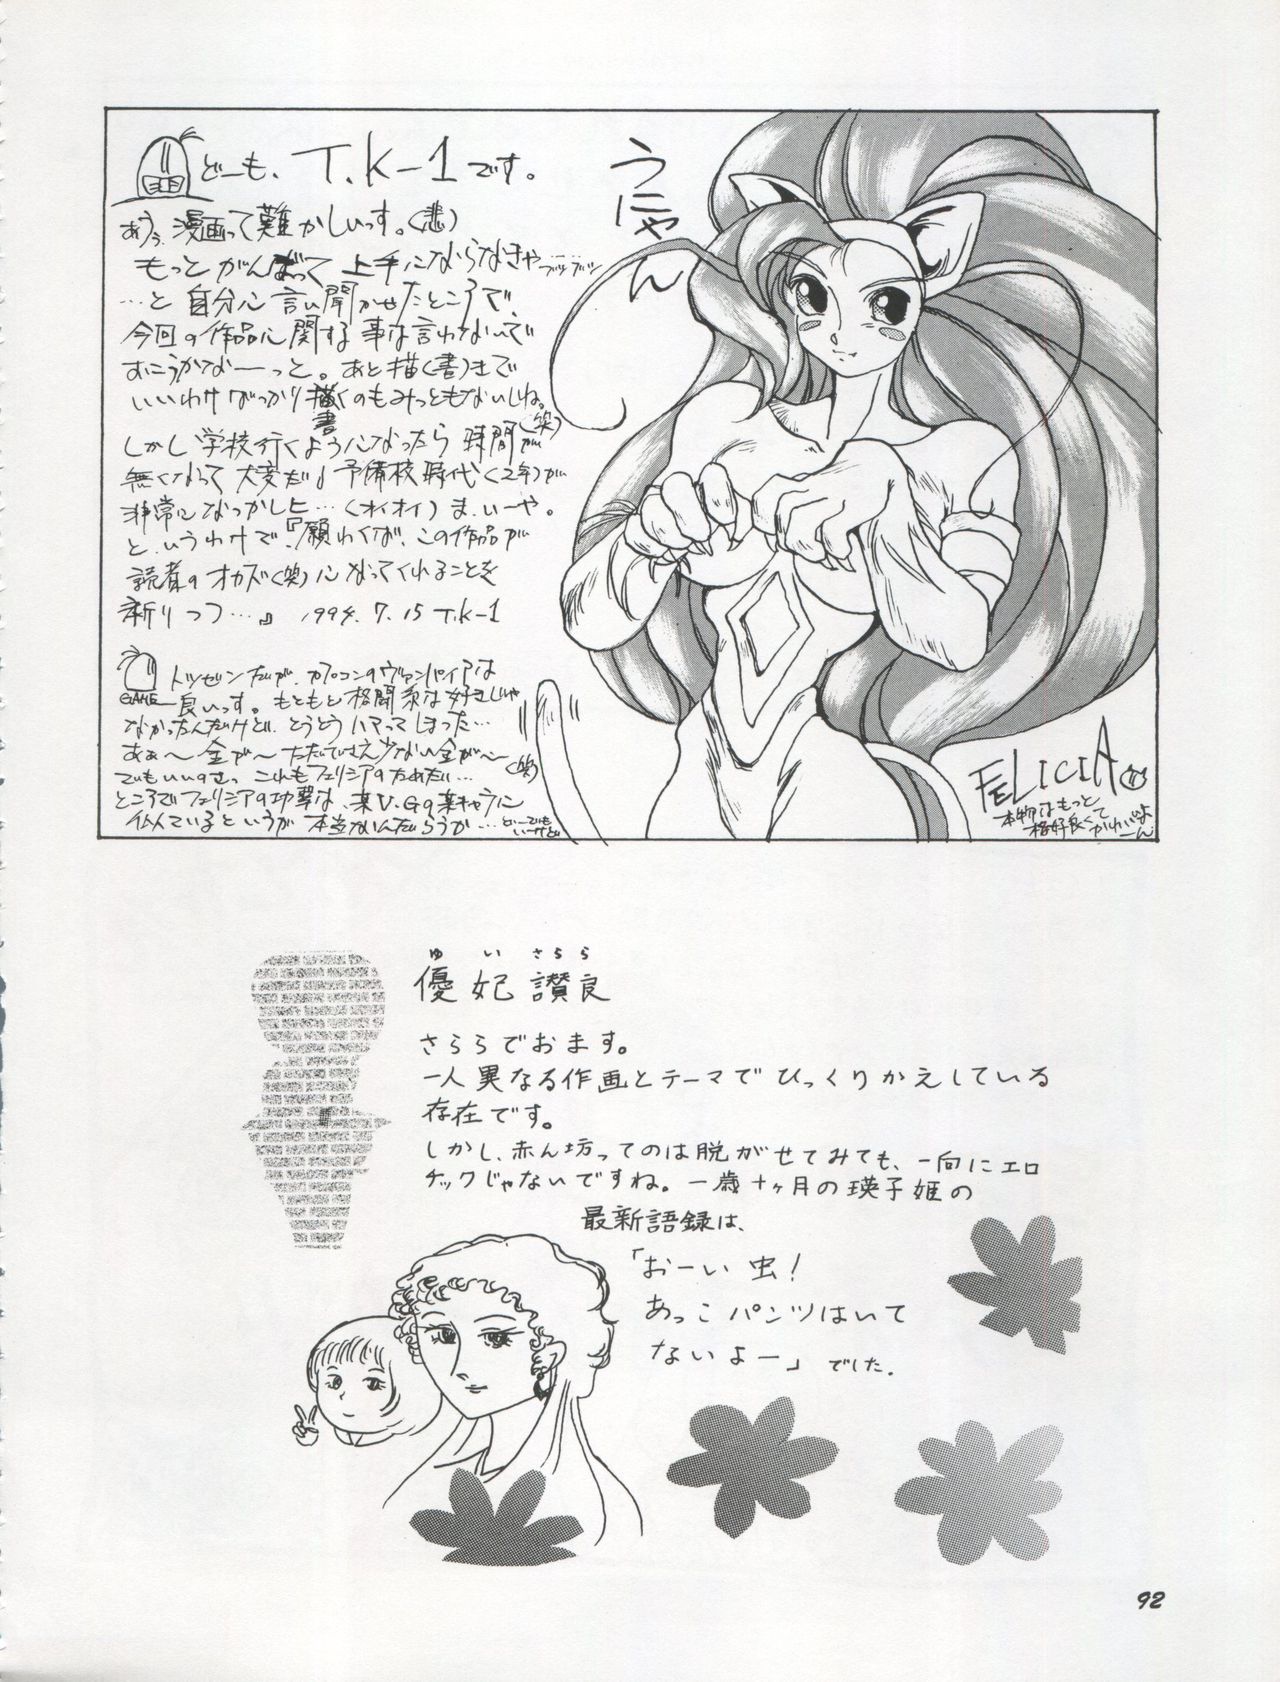 どーも、T.K-1です。
あうぅ、漫画って難かしいっす。(悲)
もっとがんばって上手にならなきゃブツブツ
…と自分に言い聞かせたところで、
今回の作品に関する事は言わないで
おこうかなーっと。あと描(書)きで
いいわけばっかり描くのもみっともないしね。
書
(笑)
しかし学校行くようになったら時間が
無くなって大変だ♪予備校時代(2年)が
非常になつかしと…(オイオイ)ま、いーや。
というわけで、『願わくば、この作品が
読者のオカズ(笑)になってくれることを
祈りつつ…』 1994.7.15 T.K-1
GAME
トツゼンだが、カプコンのヴァンパイアは
良いっす。もともと格闘系は好きじゃ
なかったんだけど、とうとうハマってしまった…
あぁ〜金が〜ただでさえ少ない金が〜
(笑)
でもいいのさっ これもフェリシアのためだ…
ところでフェリシアの功撃は、某V.Gの某キャラに
似ているというが 本当なんだろうか…どーでもいーけど
うにゃん
FELICIA
本物はもっと
格好良くて
かわいいよーん
ゆいさらら
優妃讃良
さららでおます。
一人異なる作画とテーマでひっくりかえしている
存在です。
しかし、赤ん坊ってのは脱がせてみても、一向にエロ
チックじゃないですね。一歳十ヶ月の瑛子姫の
最新語録は、
「おーい虫!
あっこパンツはいて
ないよー」でした。
92